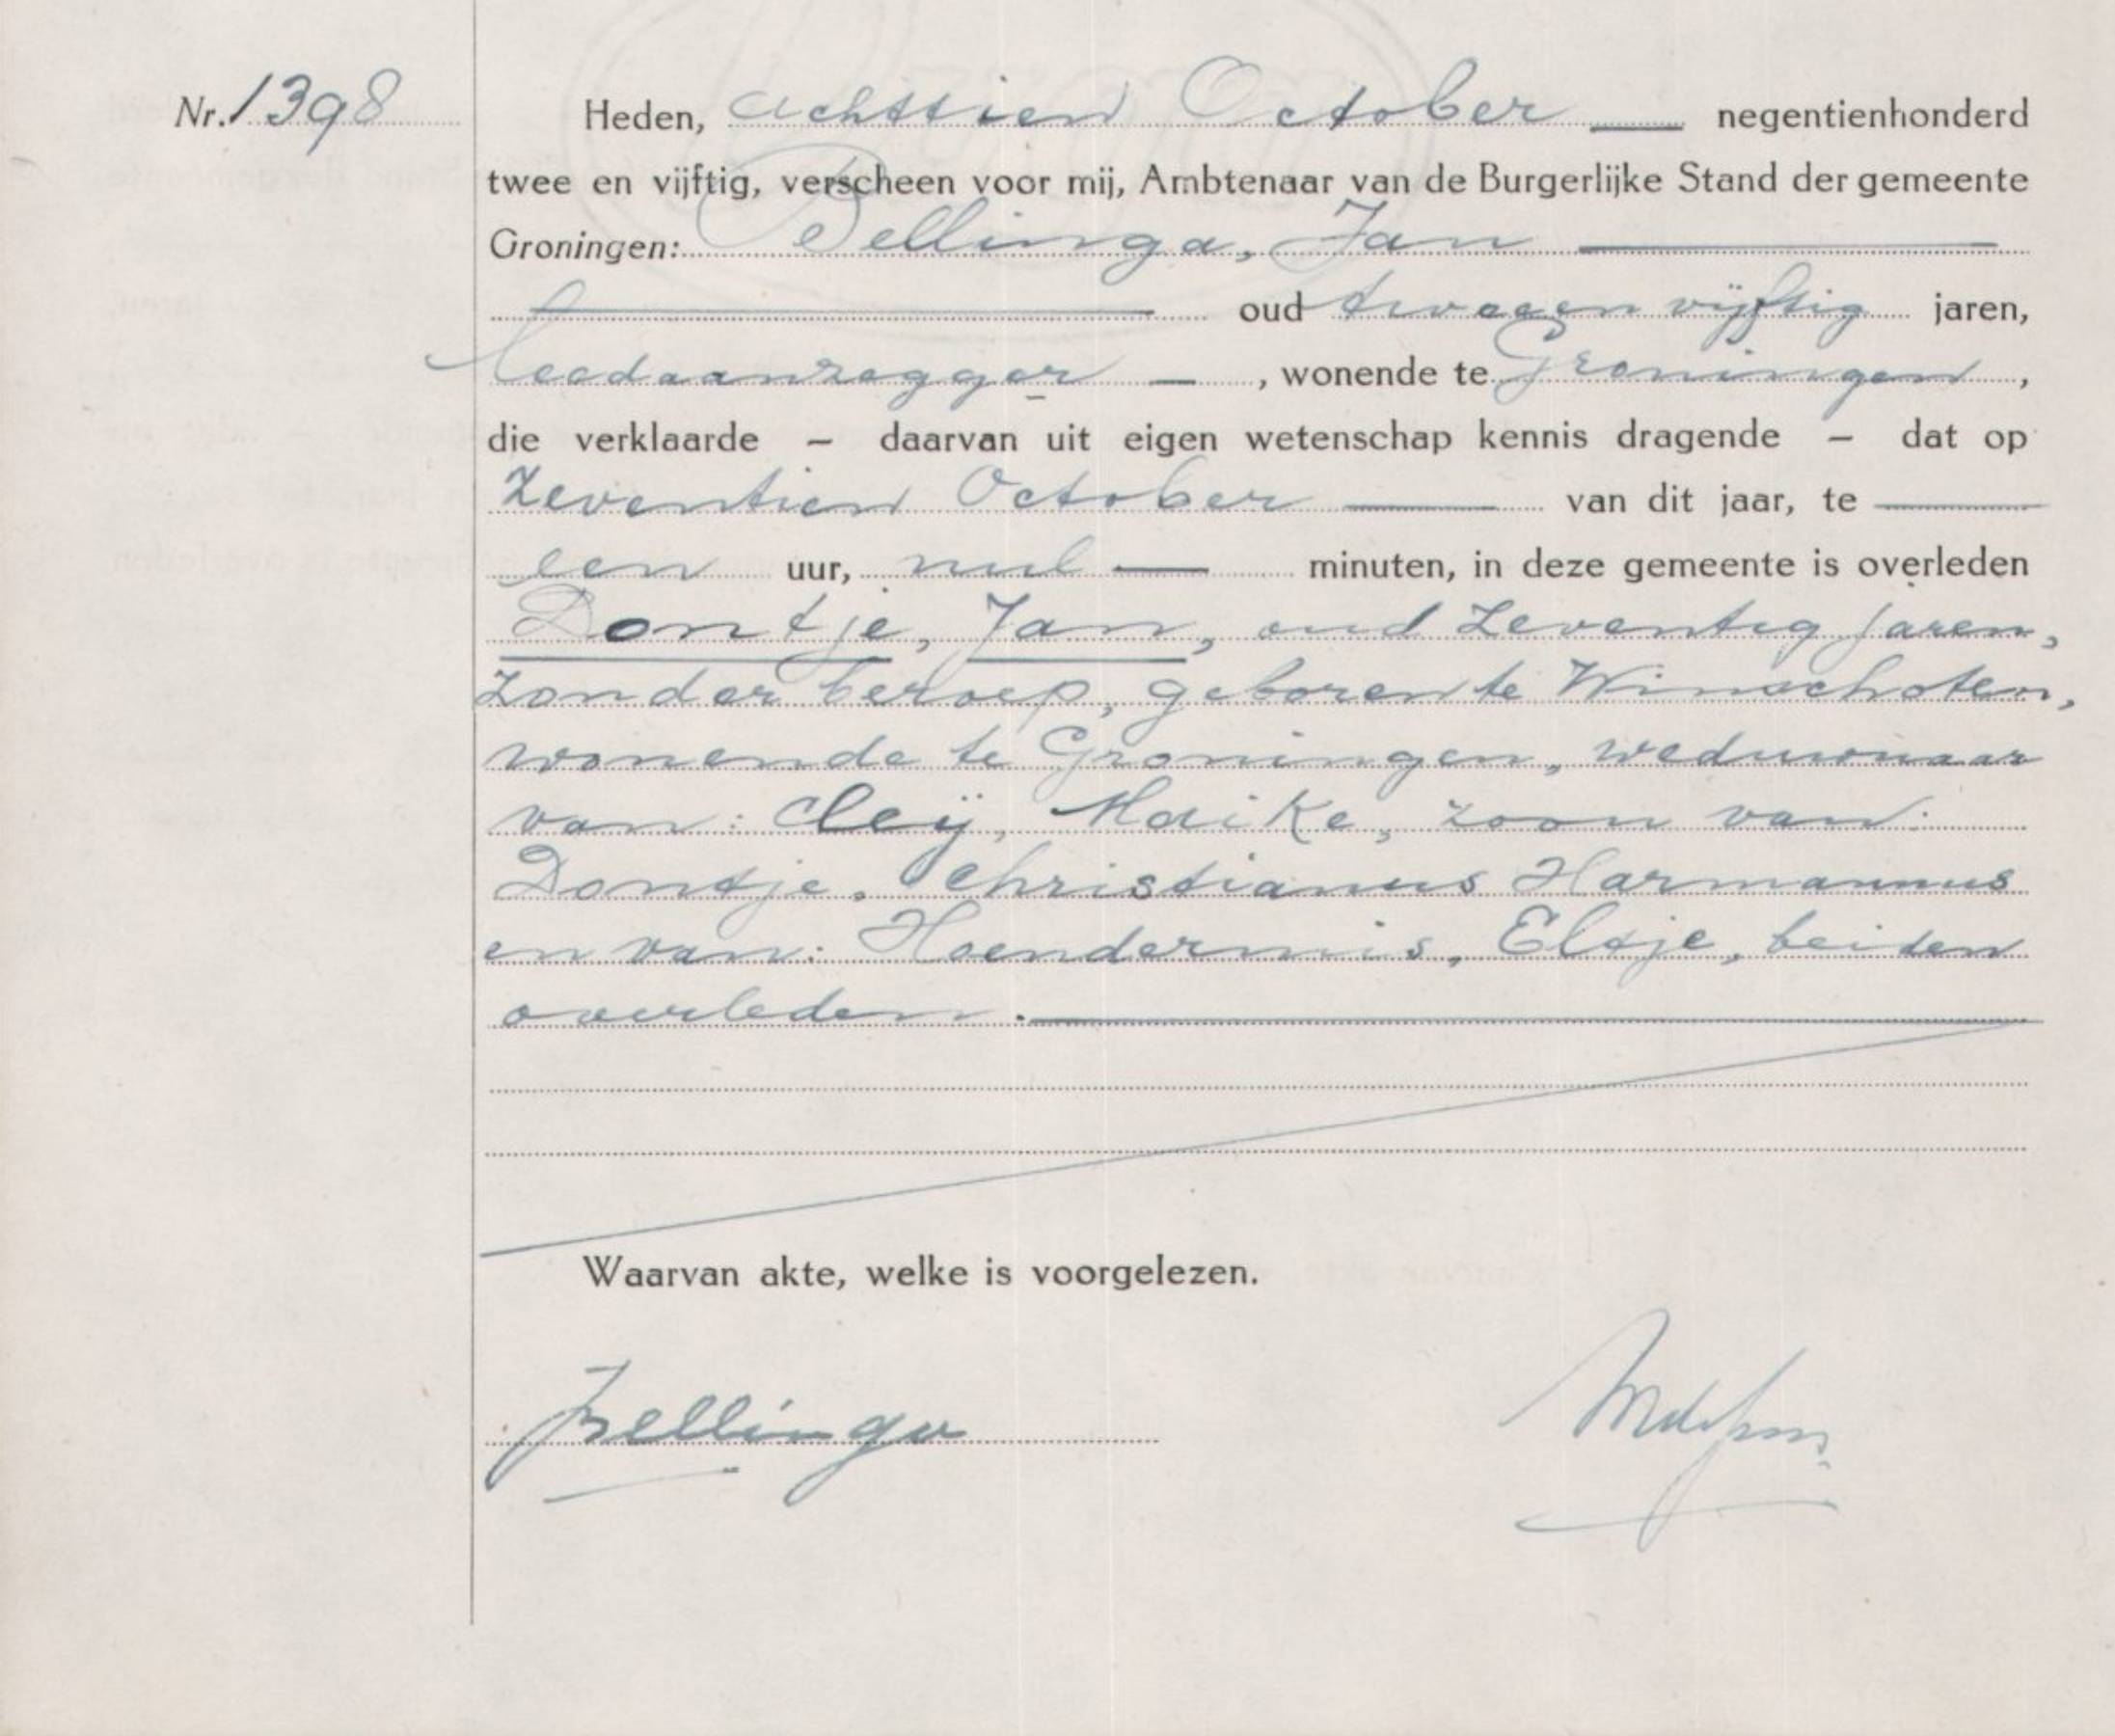 Nr. 1398
Heden, achttien October negentienhonderd
twee en vijftig, verscheen voor mij, Ambtenaar van de Burgerlijke Stand der gemeente
Groningen: Bellinga, Jan
oud tweeenvijftig jaren,
leedaanzegger, wonende te Groningen,
die verklaarde – daarvan uit eigen wetenschap kennis dragende – dat op
zeventien October van dit jaar, te
een uur, nul minuten, in deze gemeente is overleden
Dontje, Jan, oud zeventig jaren,
zonder beroep, geboren te Winschoten,
wonende te Groningen, weduwnaar
van: Cleij, Maike, zoon van:
Dontje, Christianus Harmannus
en van: Hoendermis, Eltje, beiden
overleden.
Waarvan akte, welke is voorgelezen.
JBellinga